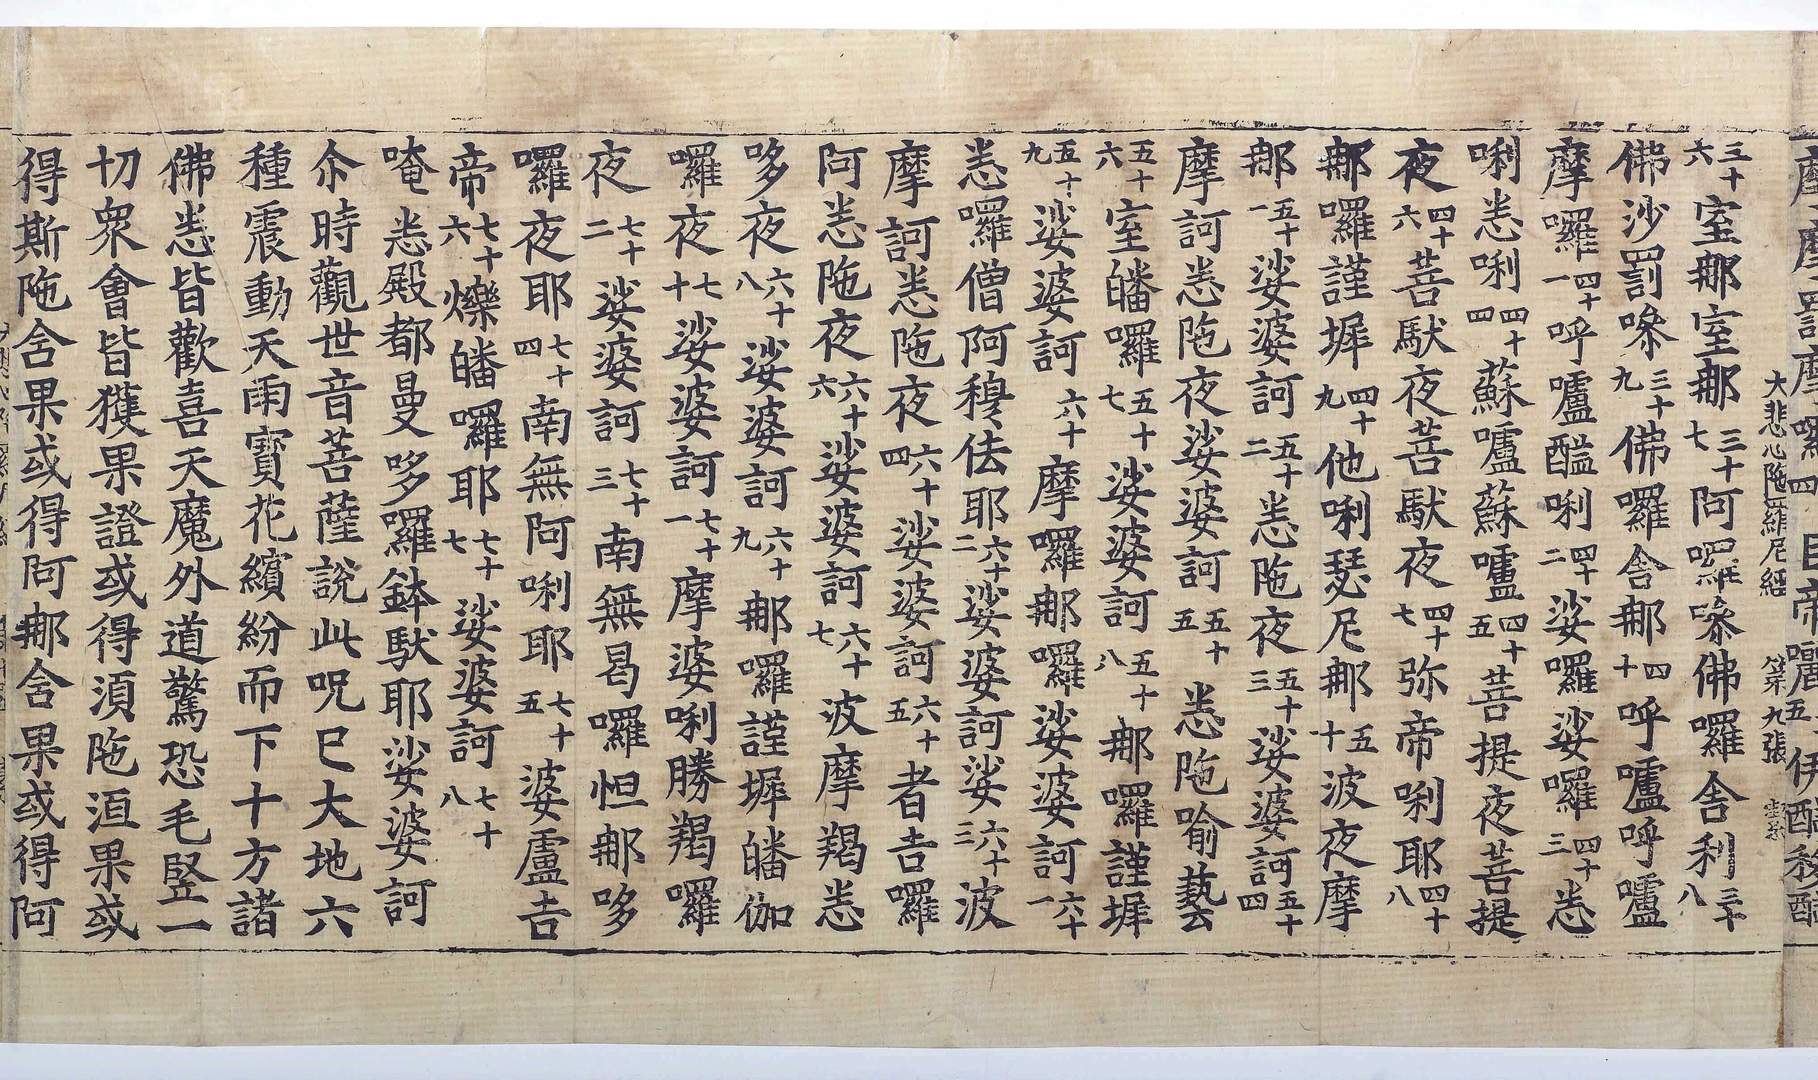 大悲心陁羅尼經 第九張
三十六室那室那三十七阿囉嘇佛囉舎利三十八
佛沙罰嘇三十九佛囉舎那四十呼嚧呼嚧
摩囉四十一呼嚧醯唎四十二娑囉娑囉四十三悉
唎悉唎四十四蘇嚧蘇嚧四十五菩提夜菩提
夜四十六菩馱夜菩馱夜四十七弥帝唎耶四十八
那囉謹墀四十九他唎瑟尼那五十波夜摩
那五十一娑婆訶五十二悉陁夜五十三娑婆訶五十四
摩訶悉陁夜娑婆訶五十五悉陁喻藝
五十六室皤囉五十七娑婆訶五十八那囉謹墀
五十九娑婆訶六十摩囉那囉娑婆訶六十一
悉囉僧阿穆佉耶六十二娑婆訶娑六十三波
摩訶悉陁夜六十四娑婆訶六十五者吉囉
阿悉陁夜六十六娑婆訶六十七波摩羯悉
哆夜六十八娑婆訶六十九那囉謹墀皤伽
囉夜七十娑婆訶七十一摩婆唎勝羯囉
夜七十二娑婆訶七十三南無曷囉怛那哆
囉夜耶七十四南無阿唎耶七十五婆盧吉
帝七十六爍皤囉耶七十七娑婆訶七十八
唵悉殿都曼哆囉鉢馱耶娑婆訶
尒時觀世音菩薩說此呪已大地六
種震動天雨寶花繽紛而下十方諸
佛悉皆歡喜天魔外道驚恐毛竪一
切衆會皆獲果證或得湏陁洹果或
得斯陁舍果或得阿那舍果或得阿